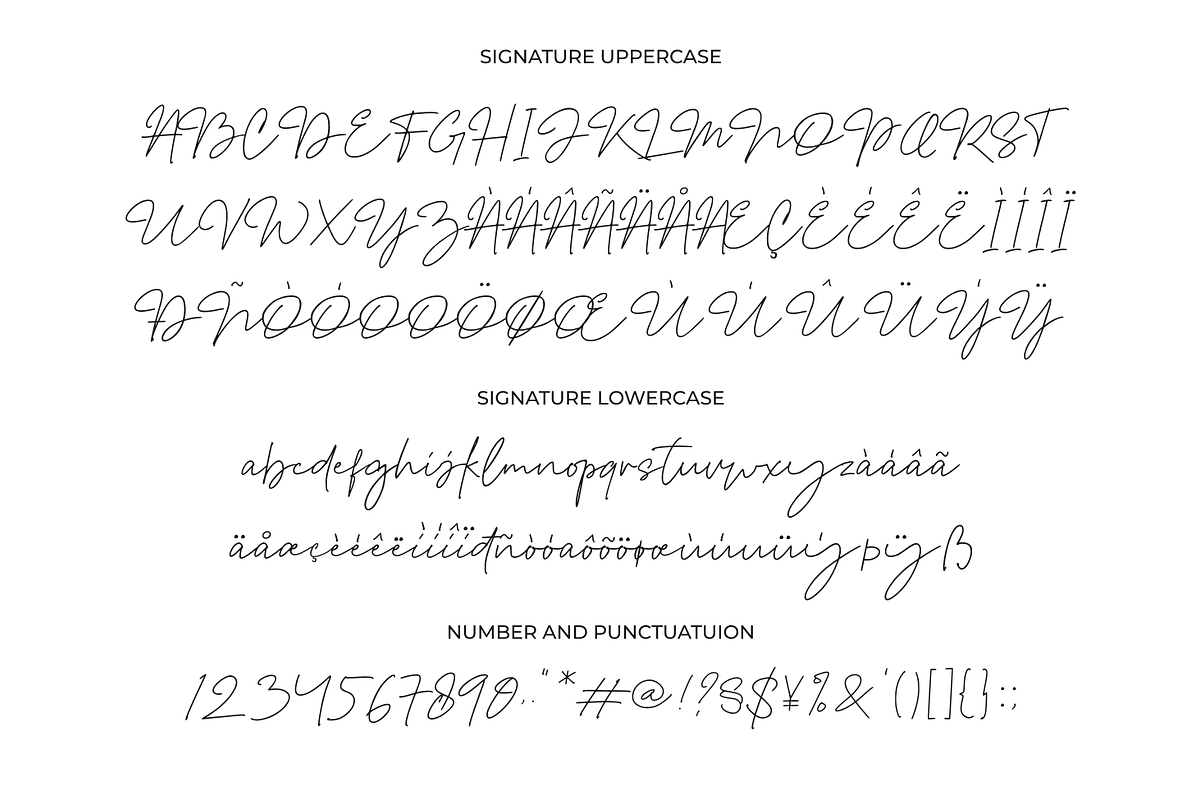 SIGNATURE UPPERCASE
ABCDEFGHIJKLMNOPQRST
UVWXYZÀÁÂÃÄÅÆÇÈÉÊËÌÍÎÏ
ÐÑÒÓOOÖØŒÙÚÛÜÝŸ
SIGNATURE LOWERCASE
abcdefghijklmnopqrstuvwxyzàáâã
äåæçèéêëìíîïđñòóaôõöøœùúuüýþÿß
NUMBER AND PUNCTUATUION
1234567890,.."*#@!?§$¥%&'()[]{}:;